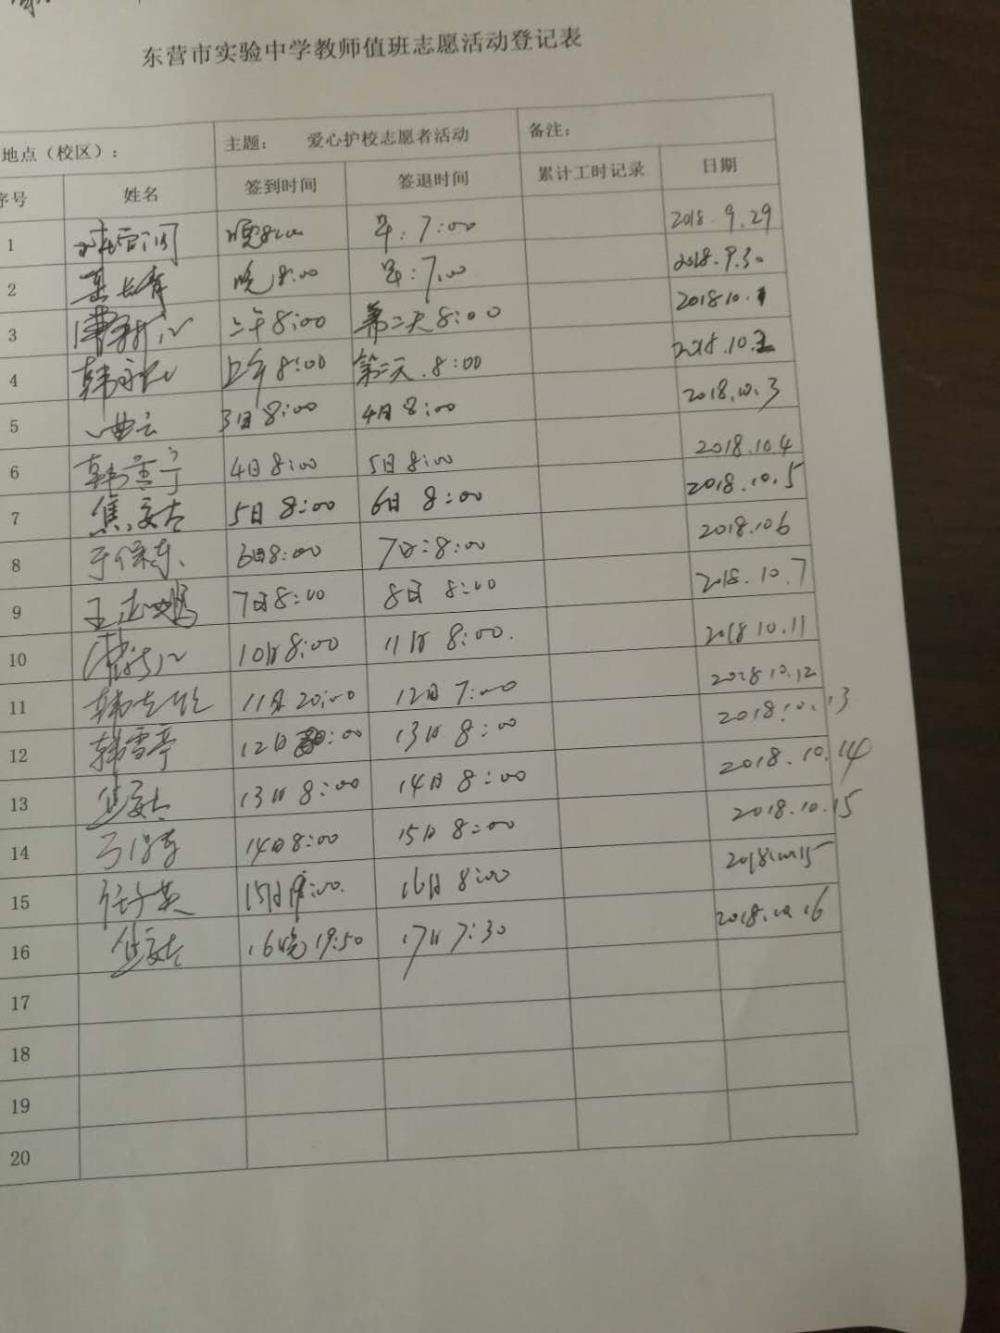 东营市实验中学教师值班志愿活动登记表
地点（校区）： 主题： 爱心护校志愿者活动 备注：
序号 姓名 签到时间 签退时间 累计工时记录 日期
1 晚8:00 早:7:00 2018.9.29
2 晚8:00 早:7:00 2018.9.30
3 上午8:00 第二天8:00 2018.10.1
4 韩 上午8:00 第二天.8:00 2018.10.2
5 曲云 3日8:00 4日8:00 2018.10.3
6 韩 4日8:00 5日8:00 2018.10.4
7 焦 5日8:00 6日8:00 2018.10.5
8 于保东 6日8:00 7日:8:00 2018.10 6
9 王 7日8:00 8日 8:00 2018.10.7
10 10日8:00 11日 8:00. 2018 10.11
11 韩 11日20:00 12日7:00 2018 10.12
12 韩雪亭 12日 :00 13日 8:00 2018.10.13
13 焦 13日8:00 14日8:00 2018.10.14
14 14日8:00 15日8:00 2018.10.15
15 任 英 15日 :00. 16日8:00 2018.10.15
16 焦 16晚19:50 17日7:30 2018.10.16
17
18
19
20